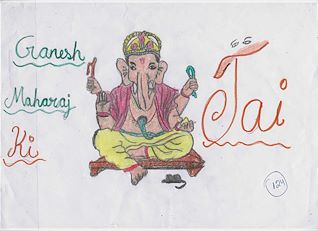 Ganesh
Maharaj
Ki
Jai
124